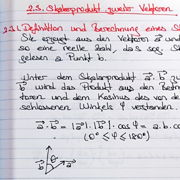 2.3. Skalarprodukt zweier Vektoren
2.3.1. Definition und Berechnung eines Sk
Sie erzeugt aus den Vektoren a⃗ und
so eine reelle Zahl, das sog. S
gelesen a Punkt b.
Unter dem Skalarprodukt a⃗·b⃗
b⃗ wird das Produkt aus den Betr
toren und dem Kosinus des von de
schlossenen Winkels φ verstanden.
a⃗·b⃗ = |a⃗|·|b⃗|·cos φ = a·b·co
(0° ≤ φ ≤ 180°)
b⃗